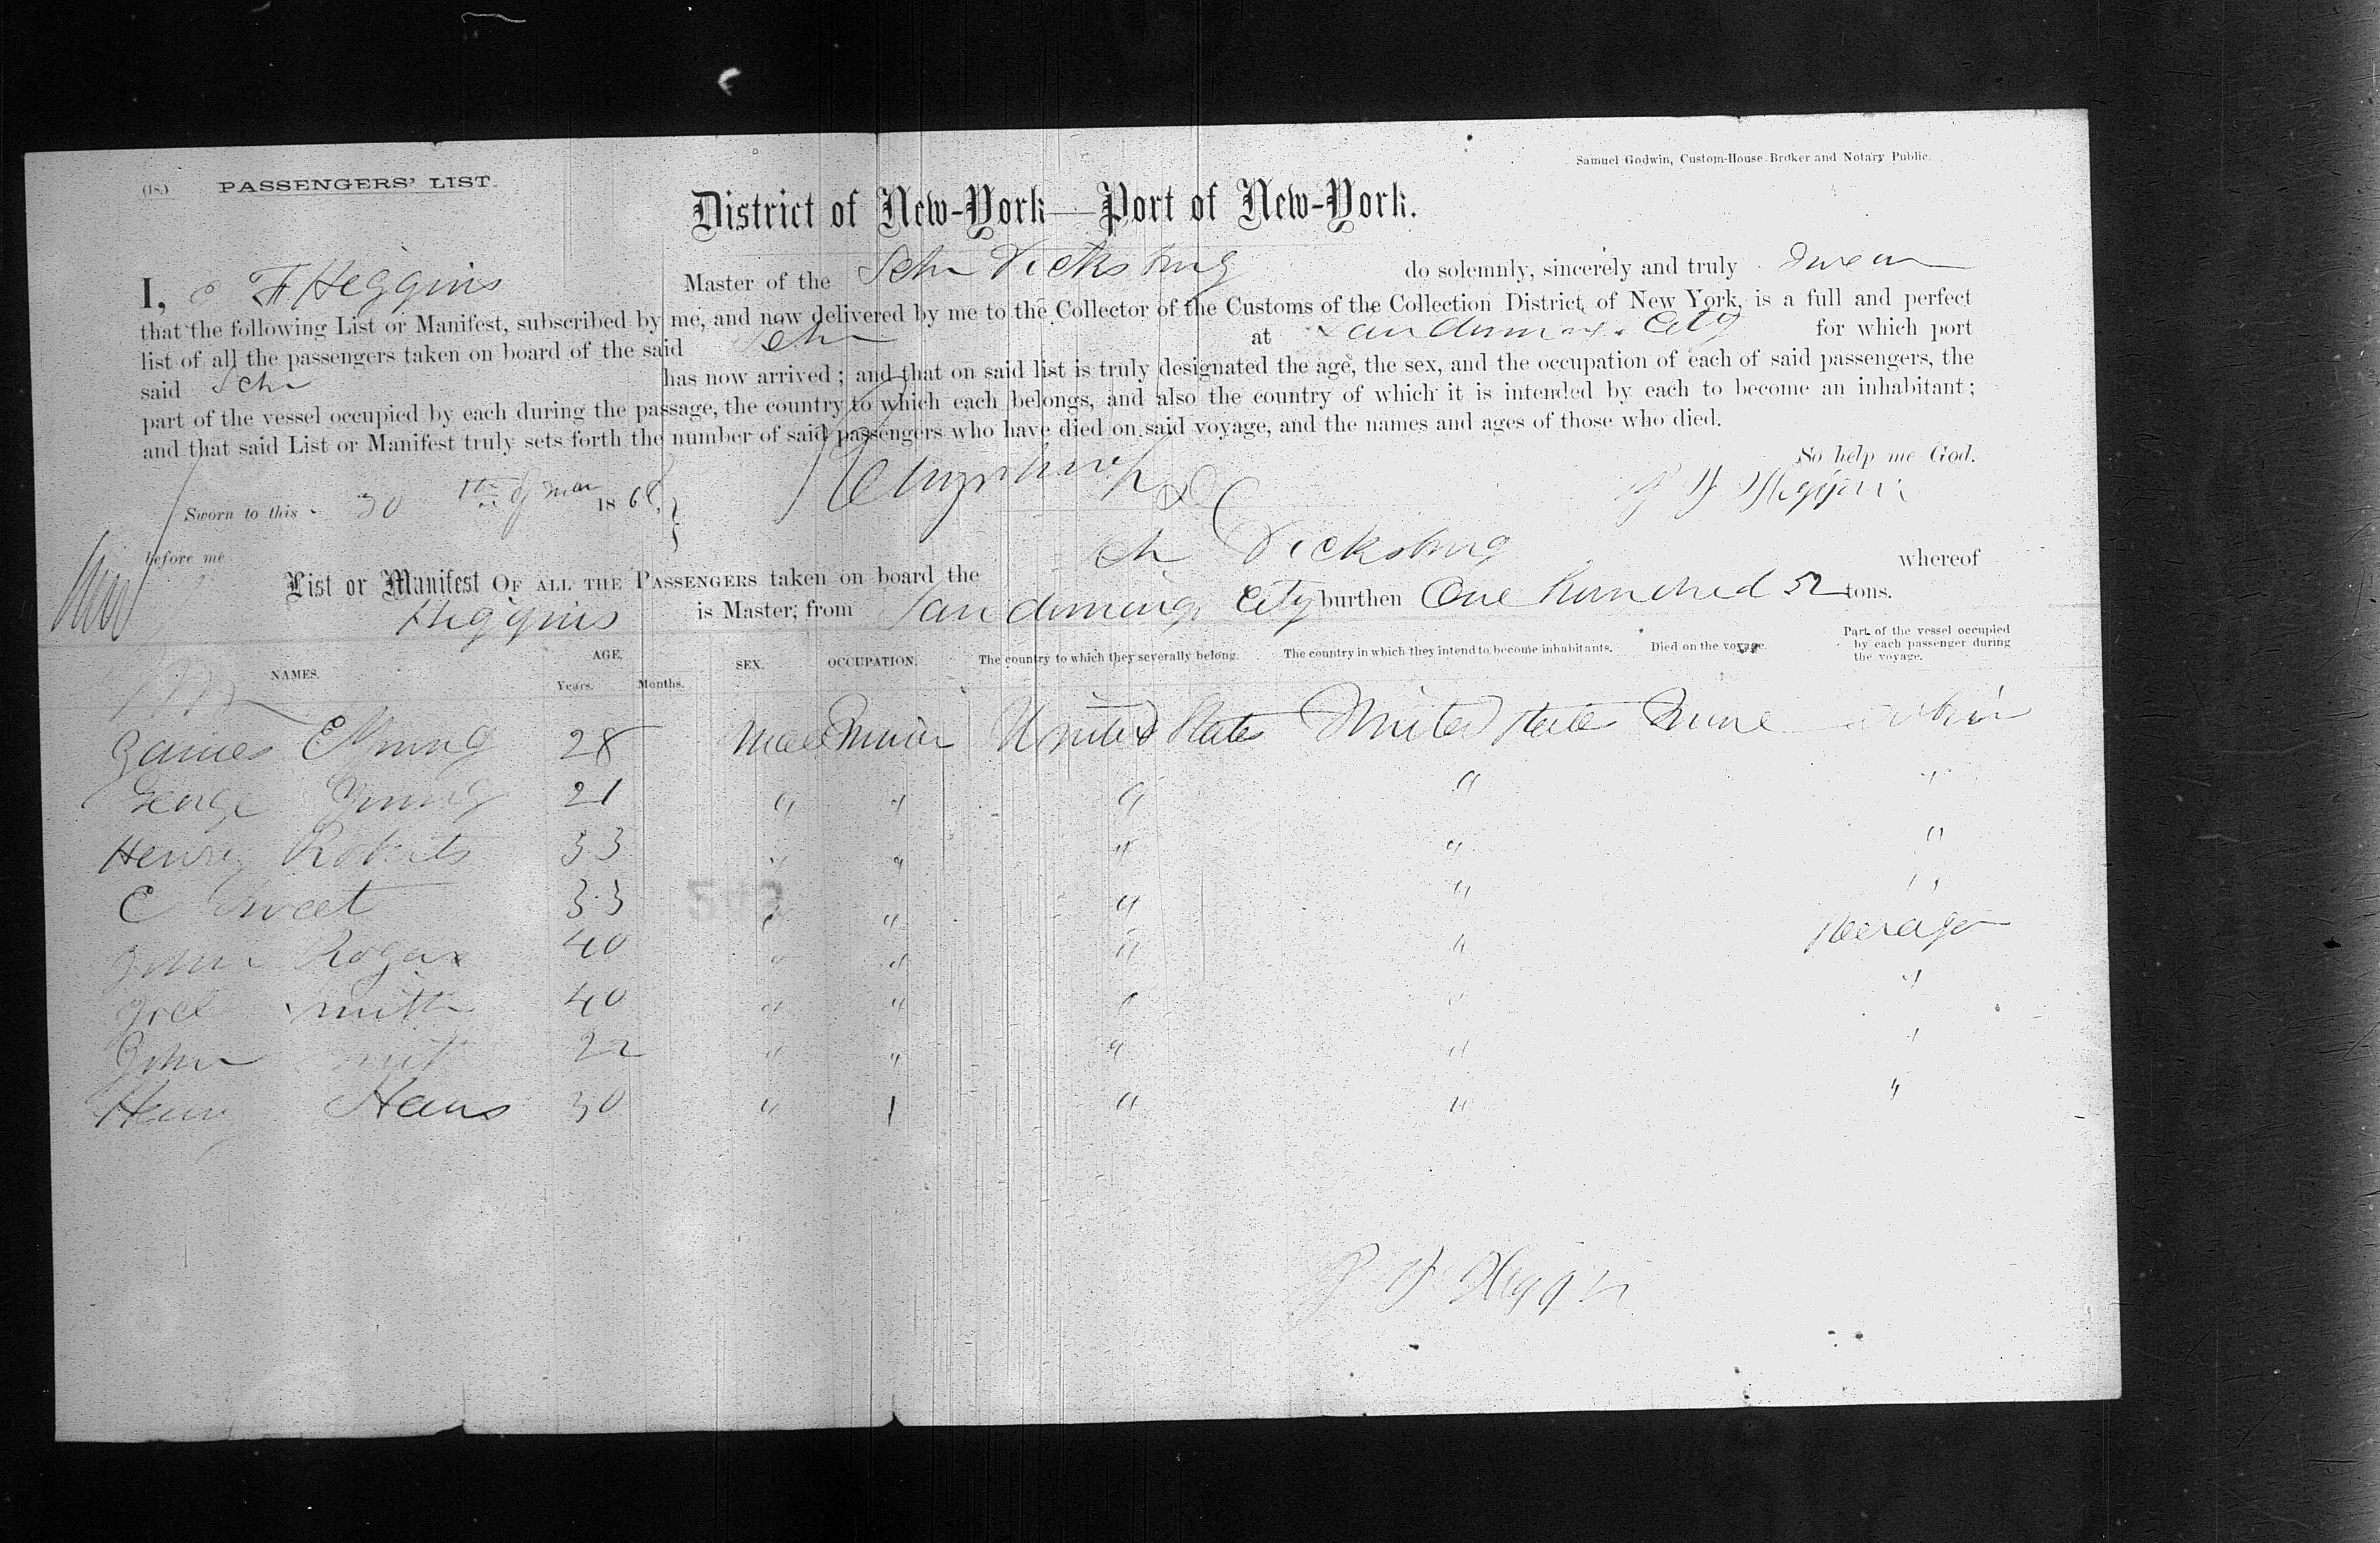 (18.) PASSENGERS' LIST.
Samuel Godwin, Custom-House Broker and Notary Public.
District of New-York—Port of New-York.
I, F Heggins Master of the Schr Vicksburg do solemnly, sincerely and truly Swear
that the following List or Manifest, subscribed by me, and now delivered by me to the Collector of the Customs of the Collection District of New York, is a full and perfect
list of all the passengers taken on board of the said Schr at City for which port
said Schr has now arrived; and that on said list is truly designated the age, the sex, and the occupation of each of said passengers, the
part of the vessel occupied by each during the passage, the country to which each belongs, and also the country of which it is intended by each to become an inhabitant;
and that said List or Manifest truly sets forth the number of said passengers who have died on said voyage, and the names and ages of those who died.
So help me God.
Sworn to this 30 1868
before me
List or Manifest OF ALL THE PASSENGERS taken on board the Vicksburg whereof
Higgins is Master, from San domingo City burthen One hundred 52 tons.
NAMES. AGE. Years. Months. SEX. OCCUPATION. The country to which they severally belong. The country in which they intend to become inhabitants. Died on the voyage. Part of the vessel occupied by each passenger during the voyage.
James E Young 28 male United States United States None cabin
George Young 21 " " " " "
Henry Roberts 33 " " " " "
C Sweet 33 " " " " "
John 40 " " " " steerage
Joel Smith 40 " " " " "
John 22 " " " " "
Henry 30 " " " " "